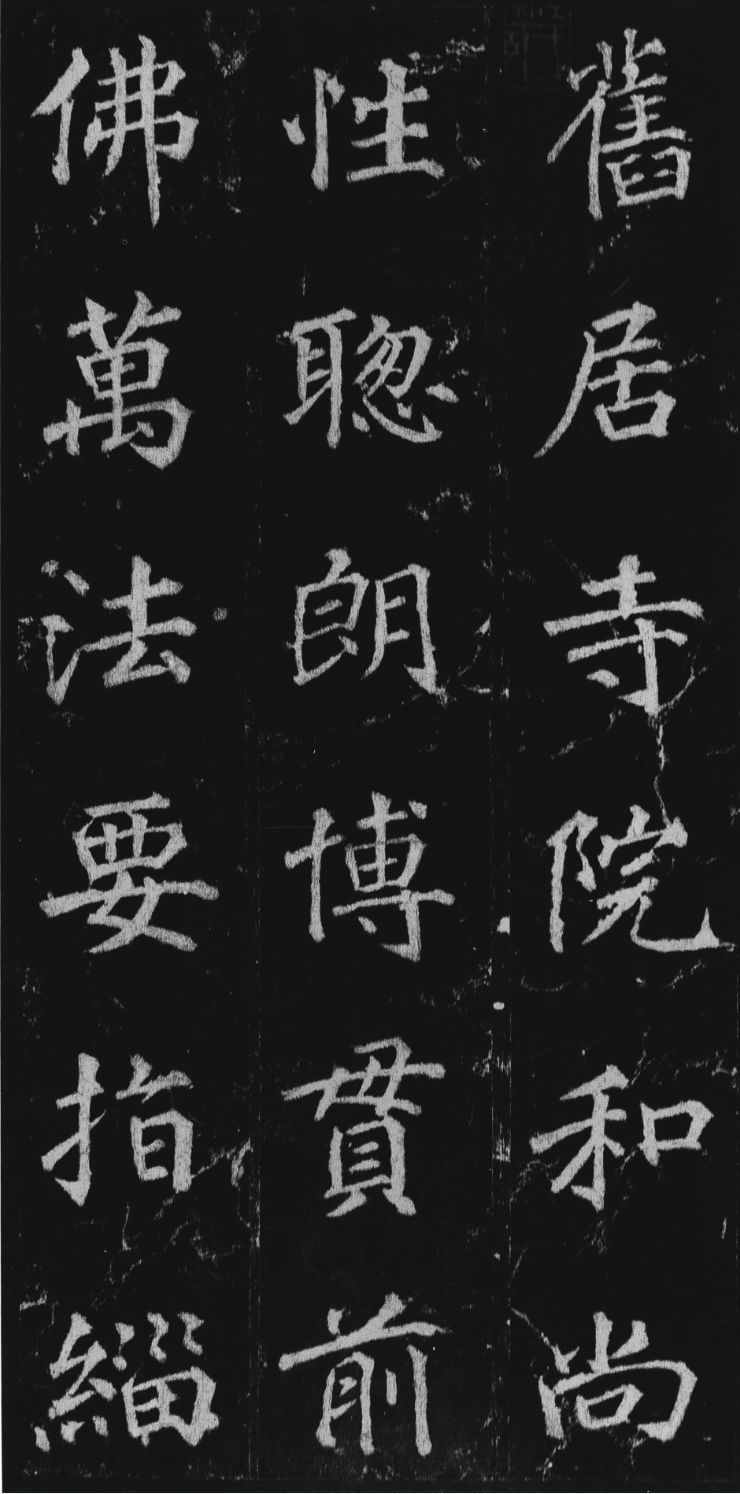 舊居寺院和尚
性聦朗博貫前
佛萬法要指緇